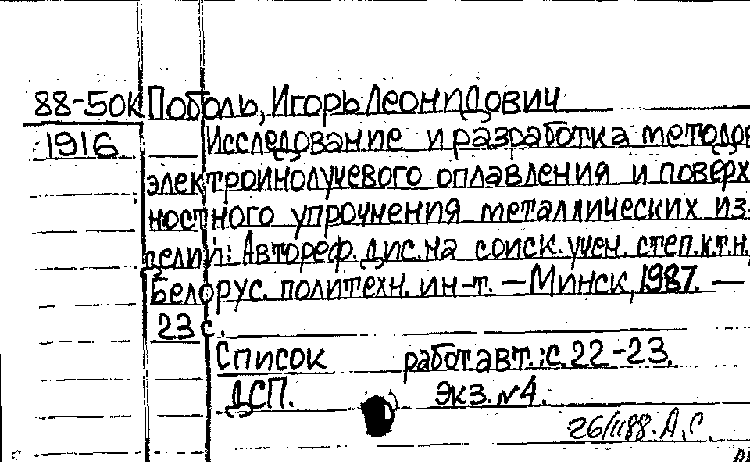 88-50к Поболь, Игорь Леонидович
1916 Исследование и разработка методов
электроннолучевого оплавления и поверх
ностного упрочнения металлических из-
делий: Автореф. дис. на соиск. учен. степ. к.т.н.
Белорус. политехн. ин-т. — Минск, 1987. —
23 с.
Список работ авт.: с. 22-23.
ДСП. Экз. №4.
26/II 88. А.С.